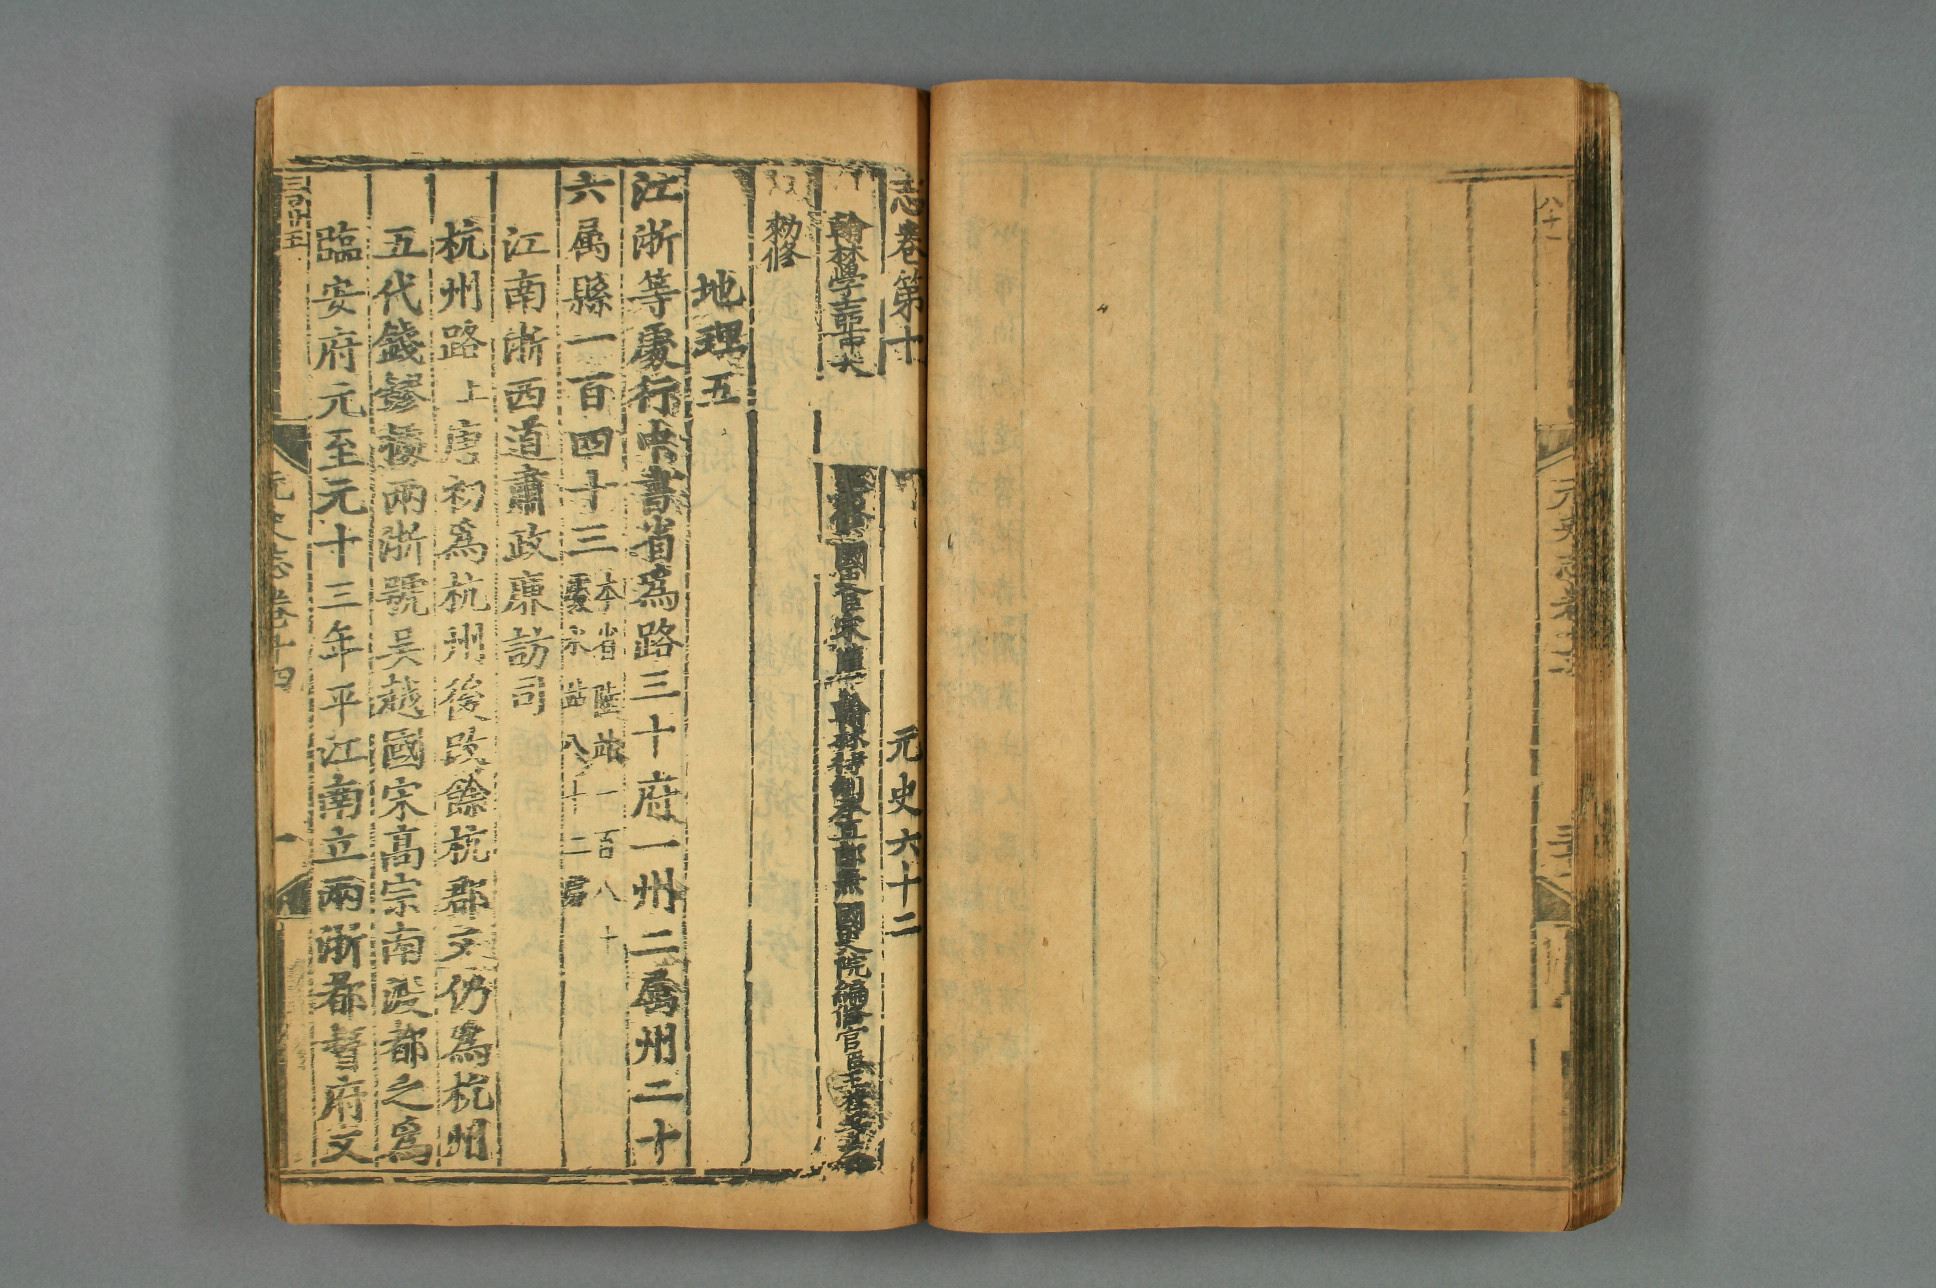 八十一
志卷第十
元史六十二
翰林學士亞中大
國
宋濂
翰林待制承直郎兼
國史院編修官臣王禕
勑修
地理五
江浙等處行中書省爲路三十府一州二屬州二十
六屬縣一百四十三
本省陸站一百八十
處水站八十二處
江南浙西道肅政廉訪司
杭州路
上
唐初爲杭州後改餘杭郡又仍爲杭州
五代錢鏐據兩浙號吳越國宋高宗南渡都之爲
臨安府元至元十三年平江南立兩浙都督府又
元史志卷十四
一